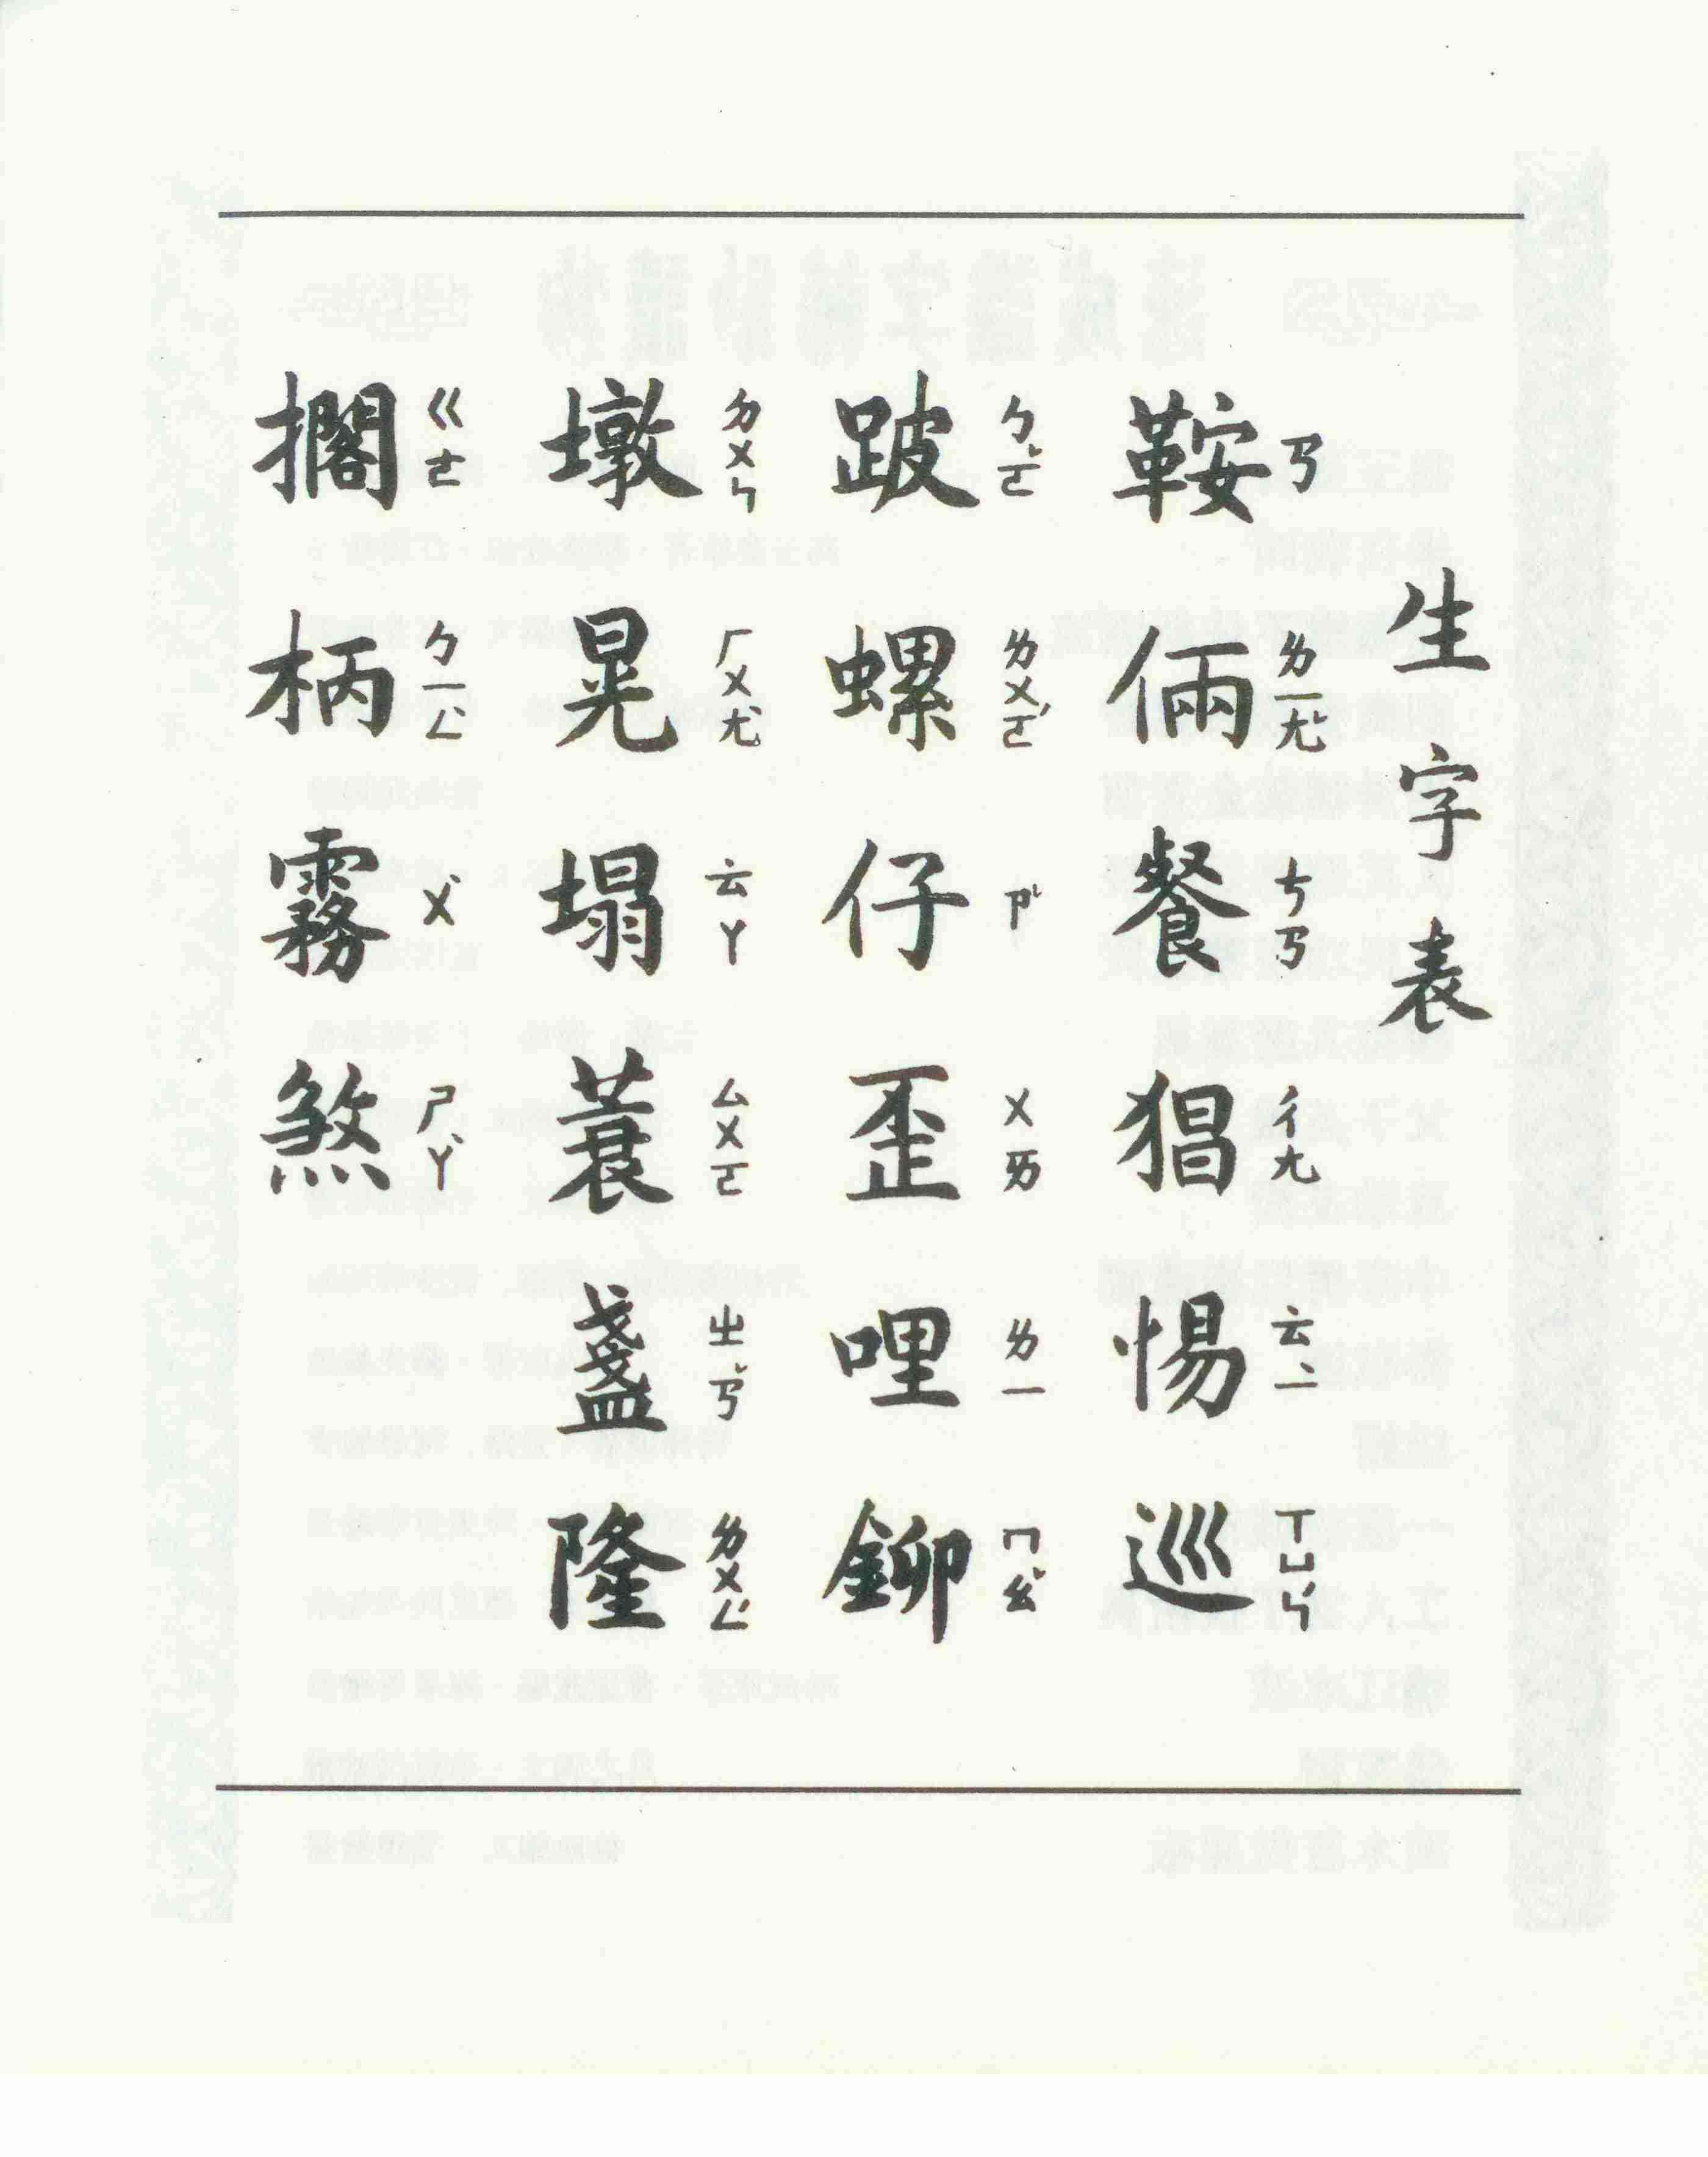 生字表
鞍ㄢ 倆ㄌㄧㄤˇ 餐ㄘㄢ 猖ㄔㄤ 惕ㄊㄧˋ 巡ㄒㄩㄣˊ
跛ㄅㄛˇ 螺ㄌㄨㄛˊ 仔ㄗˇ 歪ㄨㄞ 哩ㄌㄧ 鉚ㄇㄠˇ
墩ㄉㄨㄣ 晃ㄏㄨㄤˇ 塌ㄊㄚ 蓑ㄙㄨㄛ 盞ㄓㄢˇ 隆ㄌㄨㄥˊ
擱ㄍㄜ 柄ㄅㄧㄥˇ 霧ㄨˋ 煞ㄕㄚˋ